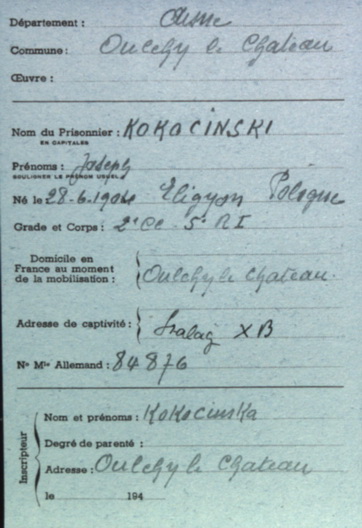 Département : Aisne
Commune : Oulchy le Chateau
Œuvre :
Nom du Prisonnier : KOKOCINSKI
EN CAPITALES
Prénoms : Joseph
SOULIGNER LE PRÉNOM USUEL
Né le 28-6-1904 Pologne
Grade et Corps : 2e Cl - 5e R I
Domicile en
France au moment
de la mobilisation : Oulchy le Chateau.
Adresse de captivité : Stalag X B
No Mle Allemand : 84876
Inscripteur
Nom et prénoms : Kokocinska
Degré de parenté :
Adresse : Oulchy le Chateau
le 194